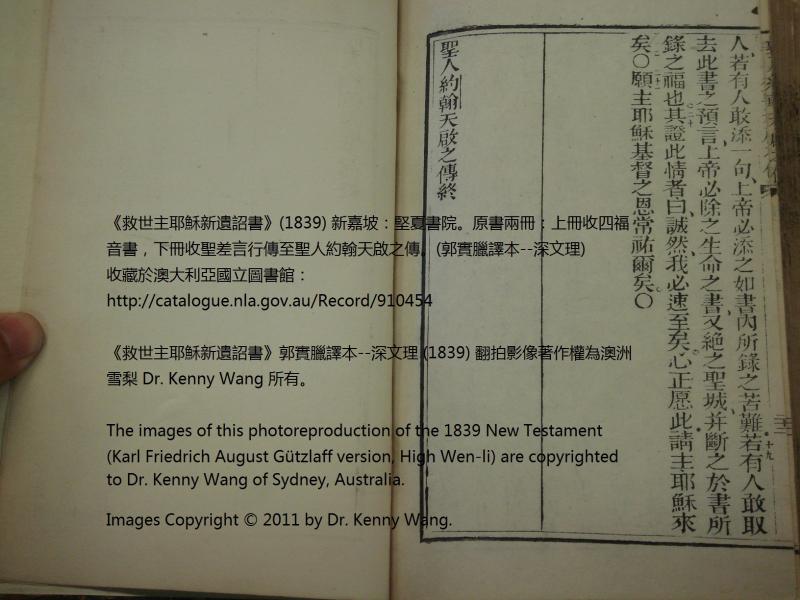 人、若有人敢添一句、上帝必添之如書內所錄之苦難若有人敢取
十九
去此書之預言、上帝必除之生命之書、又絕之聖城、并斷之於書所
錄之福也其證此情者曰、誠然、我必速至矣心正愿此請主耶穌來
二十
矣〇願主耶穌基督之恩常祐爾矣〇
二十一
聖人約翰天啟之傳終
《救世主耶穌新遺詔書》(1839) 新嘉坡：堅夏書院。原書兩冊：上冊收四福
音書，下冊收聖差言行傳至聖人約翰天啟之傳。(郭實臘譯本--深文理)
收藏於澳大利亞國立圖書館：
http://catalogue.nla.gov.au/Record/910454
《救世主耶穌新遺詔書》郭實臘譯本--深文理 (1839) 翻拍影像著作權為澳洲
雪梨 Dr. Kenny Wang 所有。
The images of this photoreproduction of the 1839 New Testament
(Karl Friedrich August Gützlaff version, High Wen-li) are copyrighted
to Dr. Kenny Wang of Sydney, Australia.
Images Copyright © 2011 by Dr. Kenny Wang.